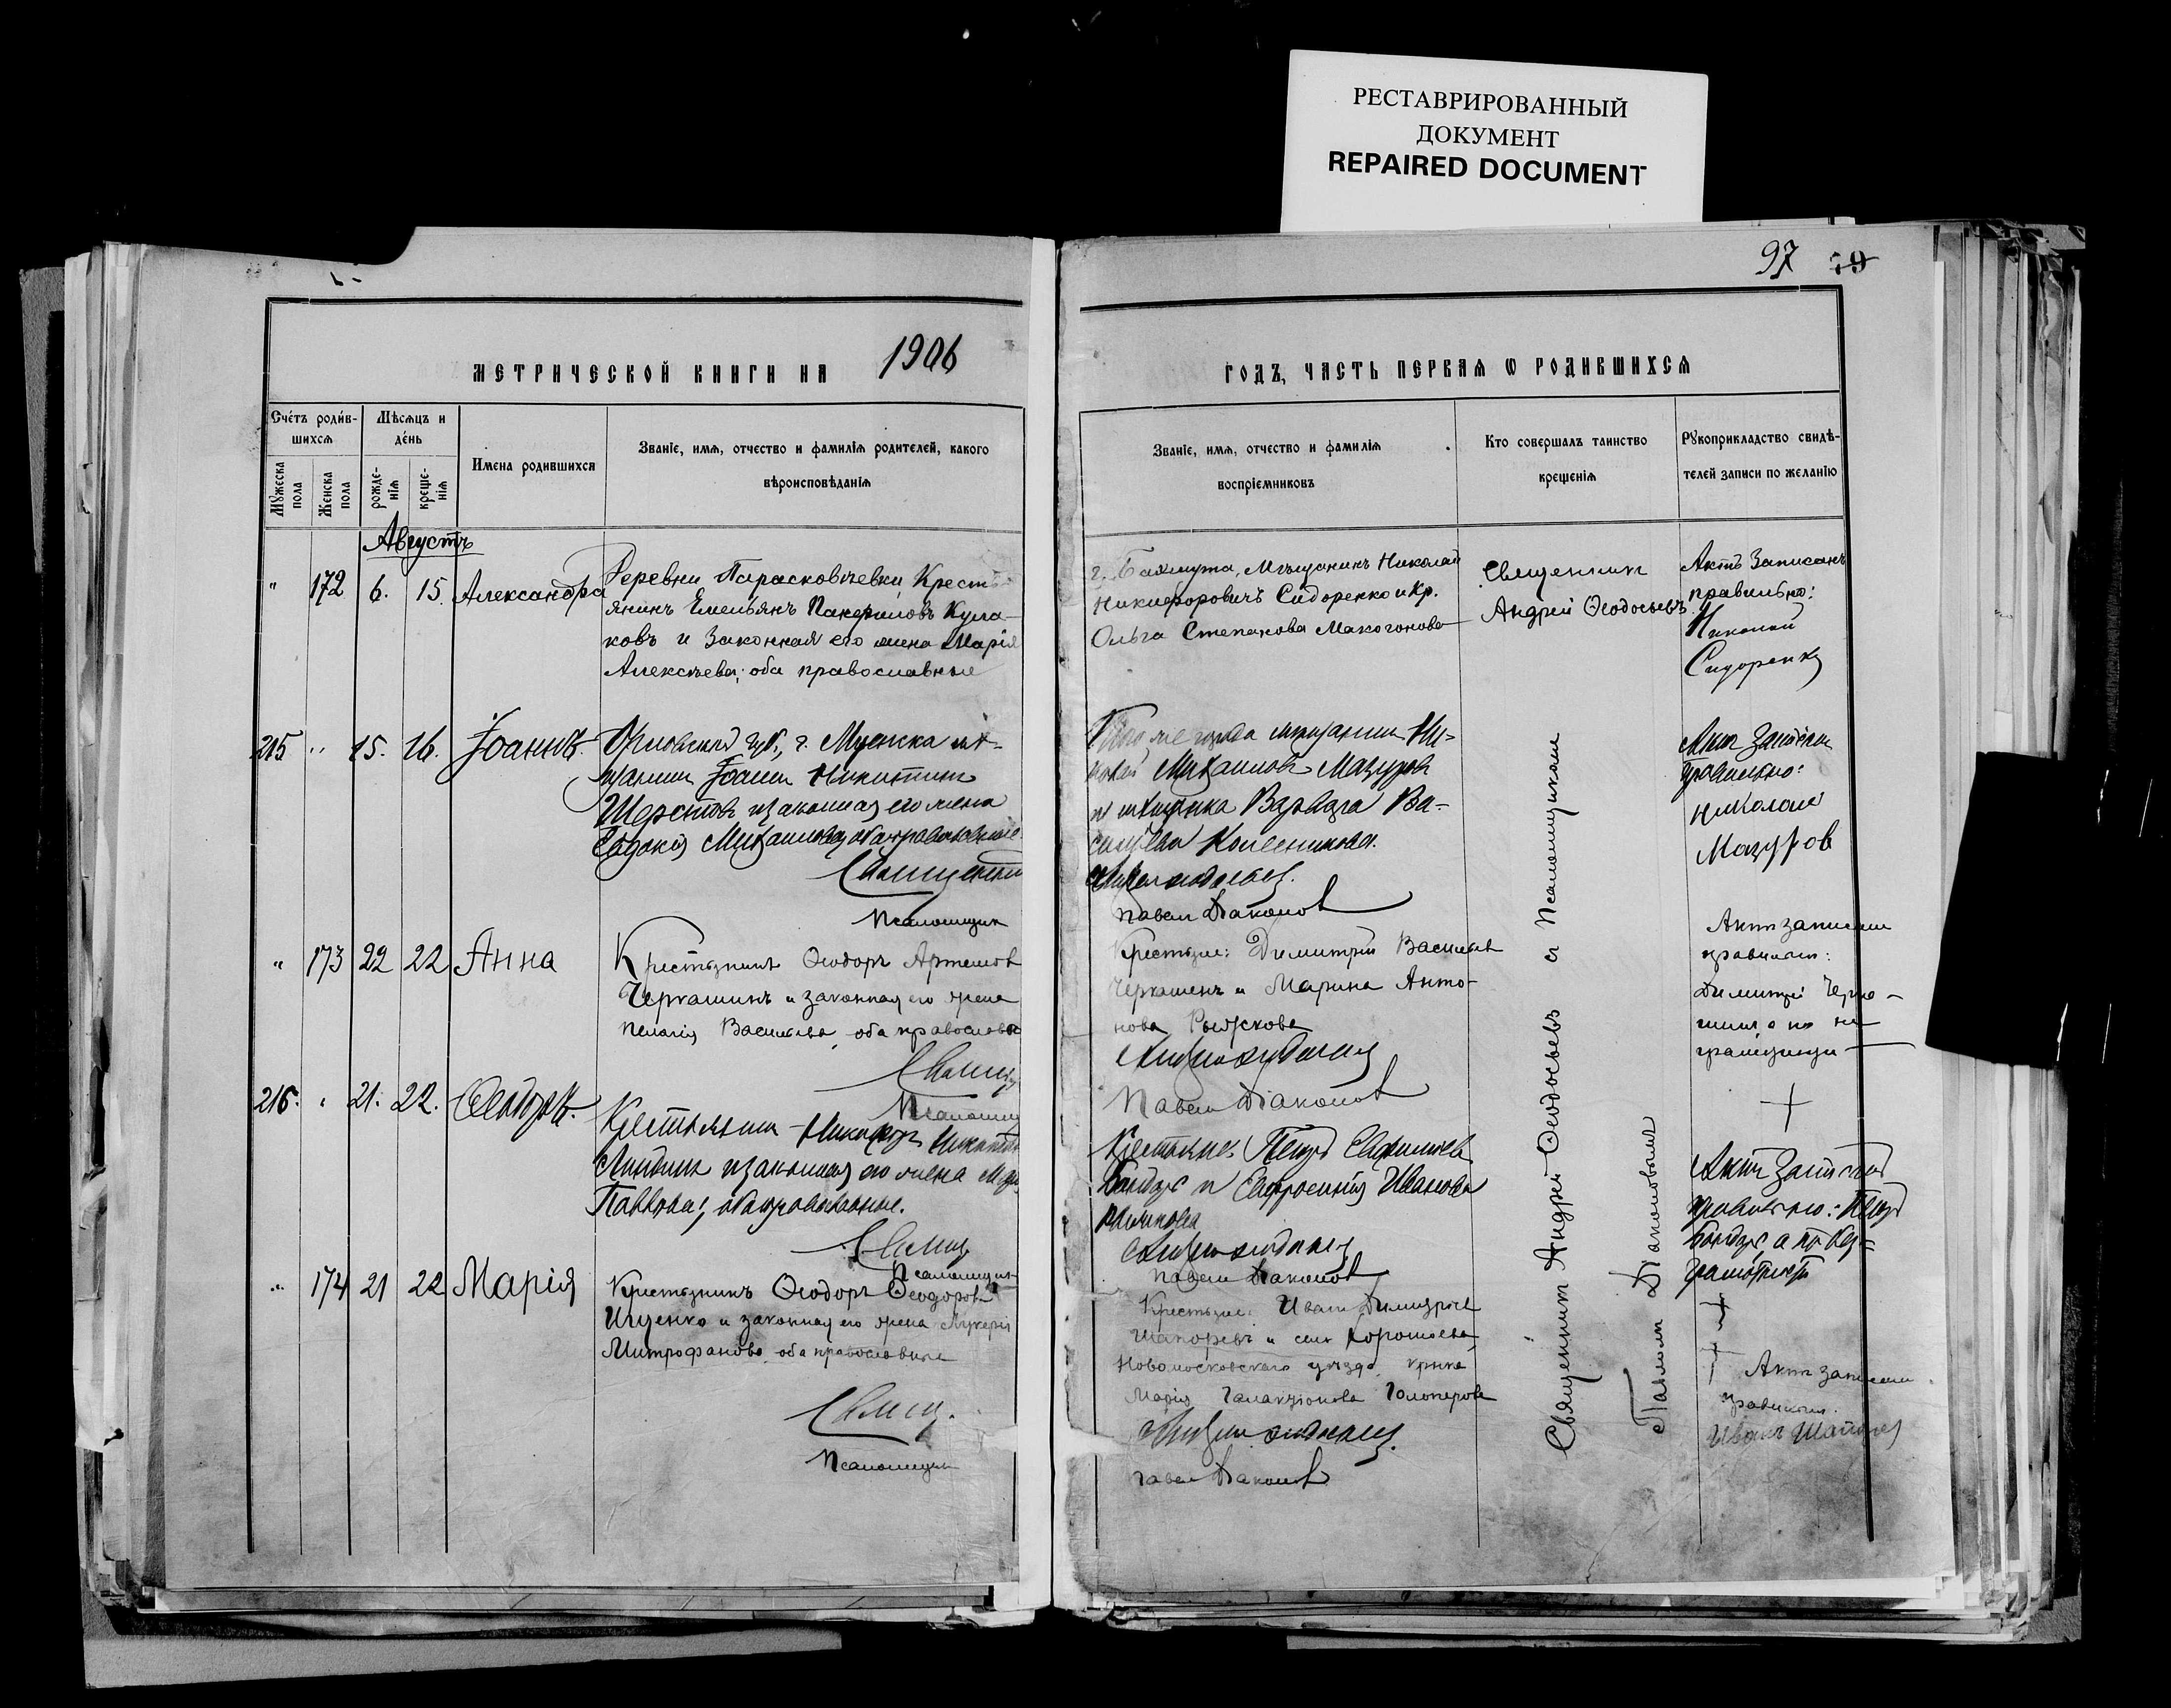 РЕСТАВРИРОВАННЫЙ
ДОКУМЕНТ
REPAIRED DOCUMENT
97 79
МЕТРИЧЕСКОЙ КНИГИ НА 1906
ГОДЪ, ЧАСТЬ ПЕРВАЯ Ѡ РОДИВШИХСЯ
Счетъ родив-
шихся
Мѣсяцъ и
день
Мужеска
пола
Женска
пола
рожде-
нія
креще-
нія
Имена родившихся
Званіе, имя, отчество и фамилія родителей, какого
вѣроисповѣданія
Званіе, имя, отчество и фамилія
воспріемниковъ
Кто совершалъ таинство
крещенія
Рукоприкладство свидѣ-
телей записи по желанію
Августъ
" 172 6. 15. Александра
Деревни Парасковіевки, Кресть-
янинъ Емельянъ Кула-
ковъ и законная его жена Марія
Алексѣева; оба православные
г. Бахмута, Мѣщанинъ Николай
Никифоровичъ Сидоренко и Кр.
Ольга Степанова Макогонова
Священник
Андрей Ѳеодосьевъ.
Актъ Записанъ
правильно:
Николай
Сидоренко
215 " 15. 16. Іоаннъ.
Орловской губ., г. Мценска мѣ-
щанин Іоанн Никитин
Шерстов и законная его жена
Евдокія Михаилова, оба православные
Священник
Псаломщик
Того же города мещанин Ни-
колай Михаилов Мазуров
и мещанка Варвара Ва-
сильева Колесникова.
Андрей Ѳеодосьев.
Павел Діаконов
Акт записан
правильно:
Николай
Мазуров
" 173 22 22 Анна
Крестьянинъ Ѳеодоръ Артемов
Черкашинъ и законная его жена
Пелагія Васильева, оба православ
Священ
Псаломщ
Крестьяне: Димитрій Васильев
Черкашенъ и Марина Анто-
нова Рыжкова
Андрей Ѳеодосьев
Павел Діаконов
Акт записан
правильно:
Димитрій Черка-
шин, а по не
грамотности
216. " 21. 22. Ѳеодоръ.
Крестьянин Никифор
и законная его жена
Павлова; оба православные.
Священ
Псаломщик
Крестьяне Петр
Бондарь и Евфросинія Иванова
Андрей Ѳеодосьев
Павел Діаконов
Акт записан
правильно: Петр
Бондарь, а по без-
грамотности
" 174 21 22 Марія
Крестьянинъ Ѳеодоръ Ѳеодоров
Ищенко и законная его жена Лукерія
Митрофанова, оба православные
Священ.
Псаломщик
Крестьяне: Иван Димитріев
Шапоревъ и села Хорошаева,
Новомосковскаго уѣзда, крнка
Марія Галактіонова
Андрей Ѳеодосьев.
Павел Діаконов
Акт записан
правильно.
Иванъ
Священник Андрей Ѳеодосьевъ с Псаломщиком
Павлом Діаконовым